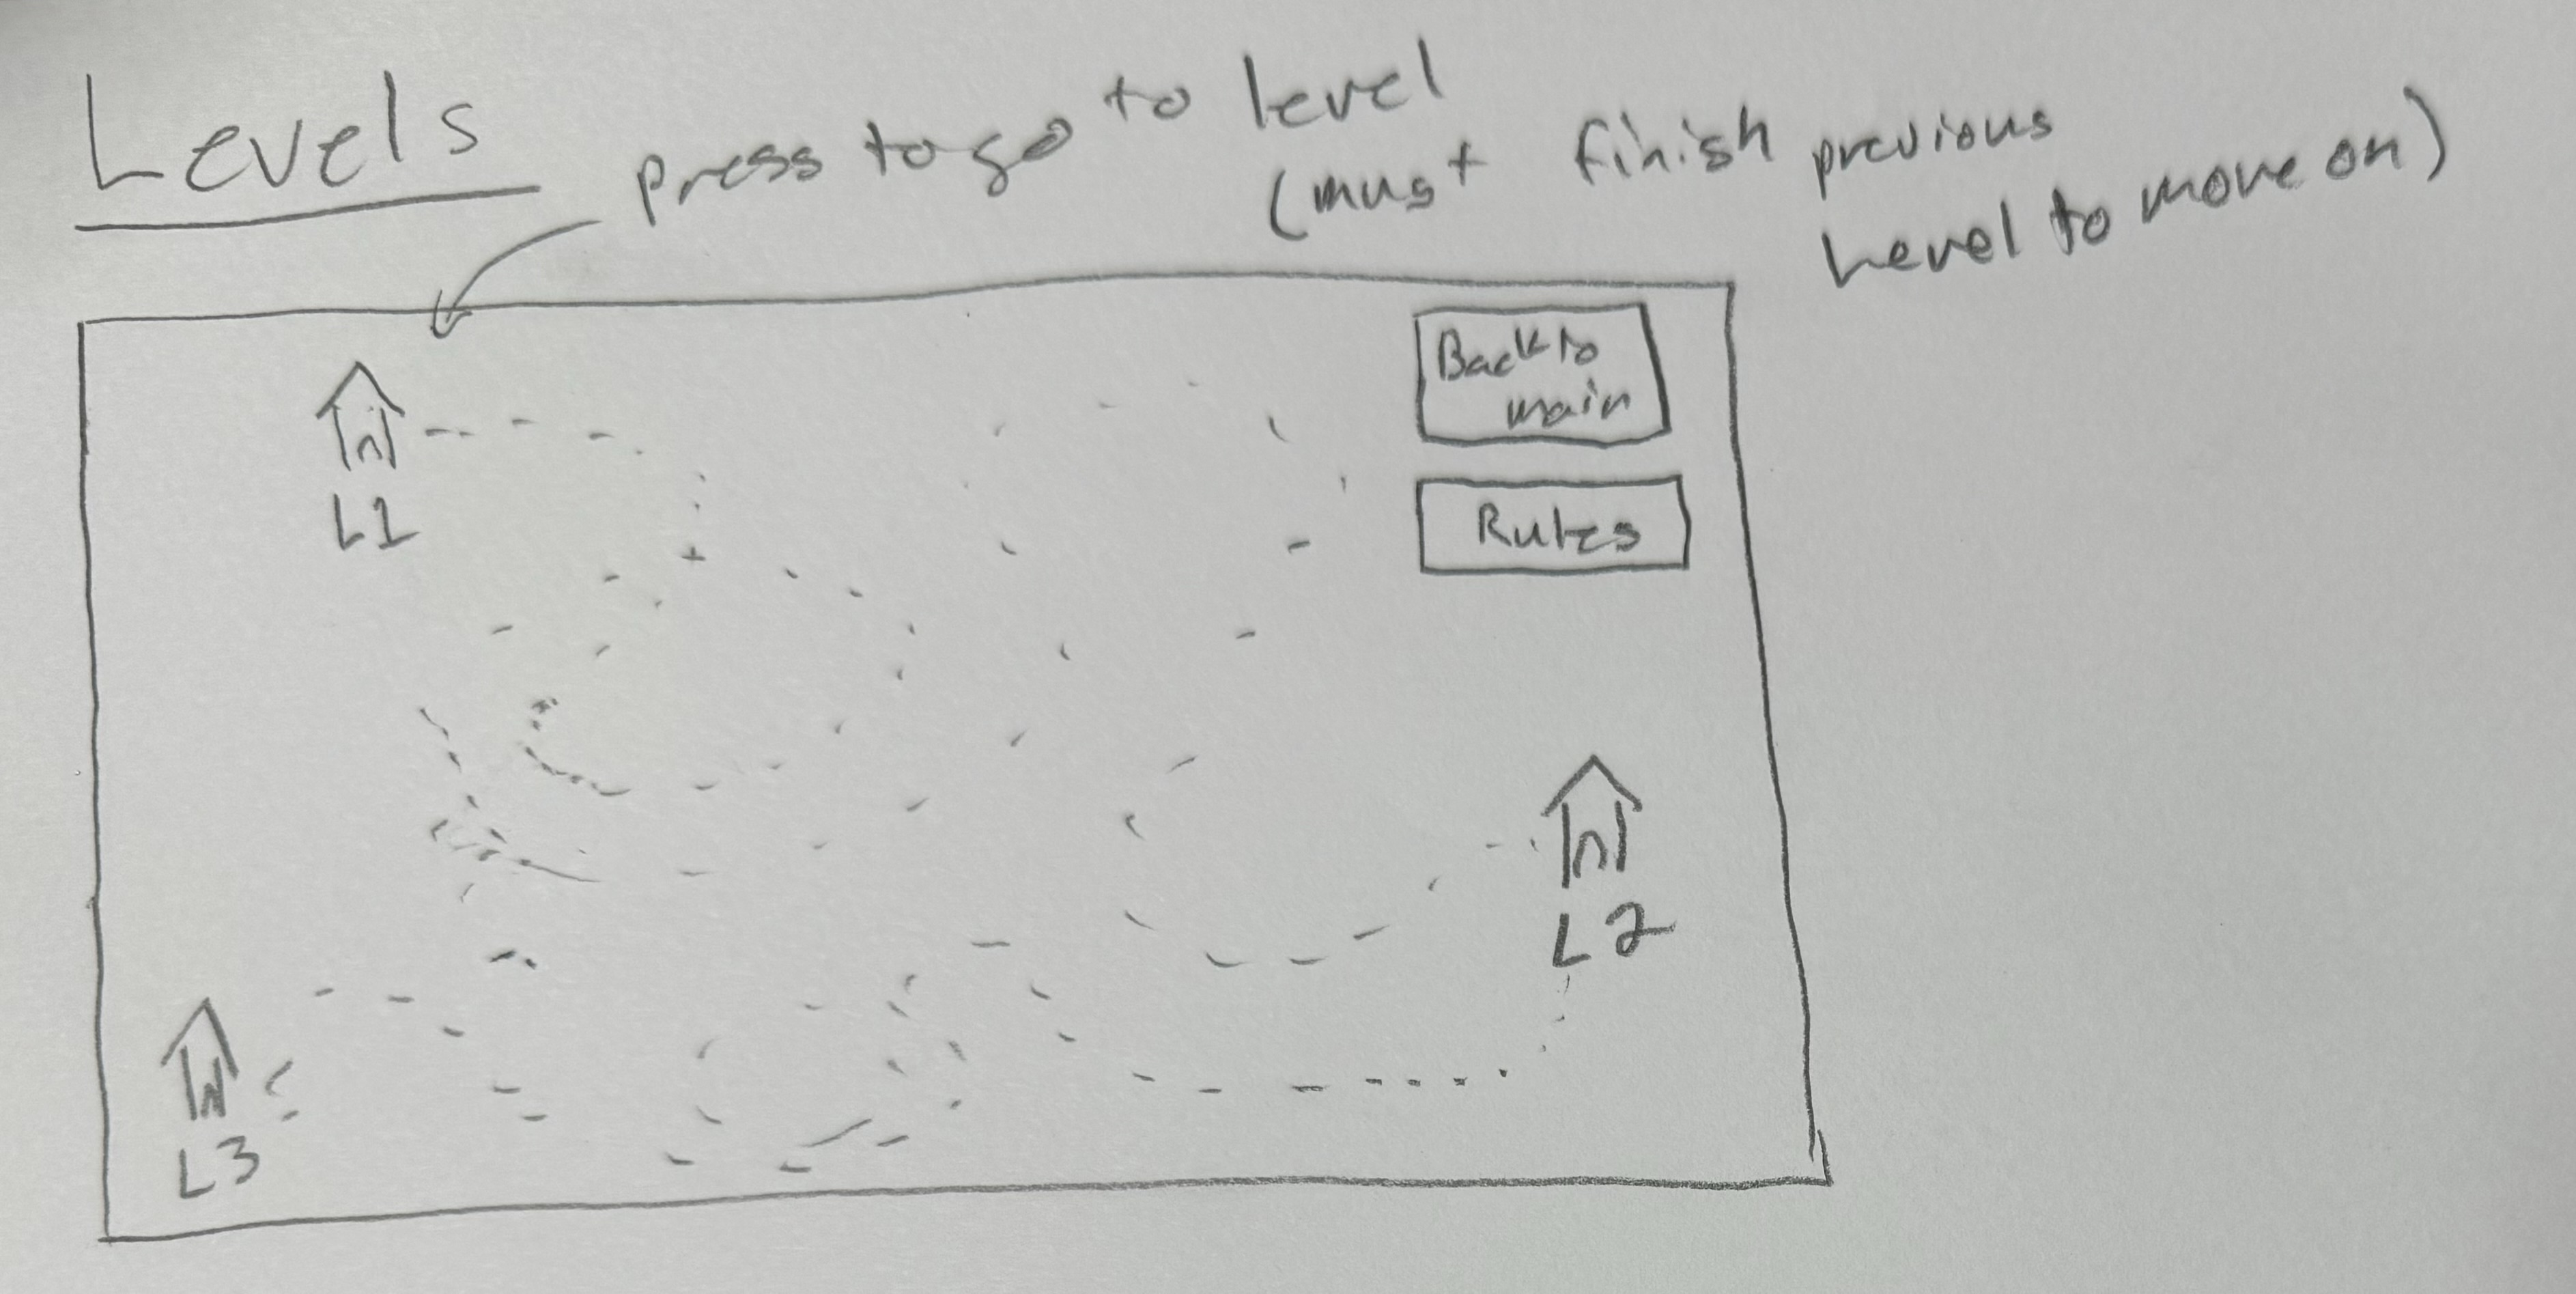 Levels
press to go to level
(must finish previous
Level to move on)
Back to
main
Rules
L1
L2
L3